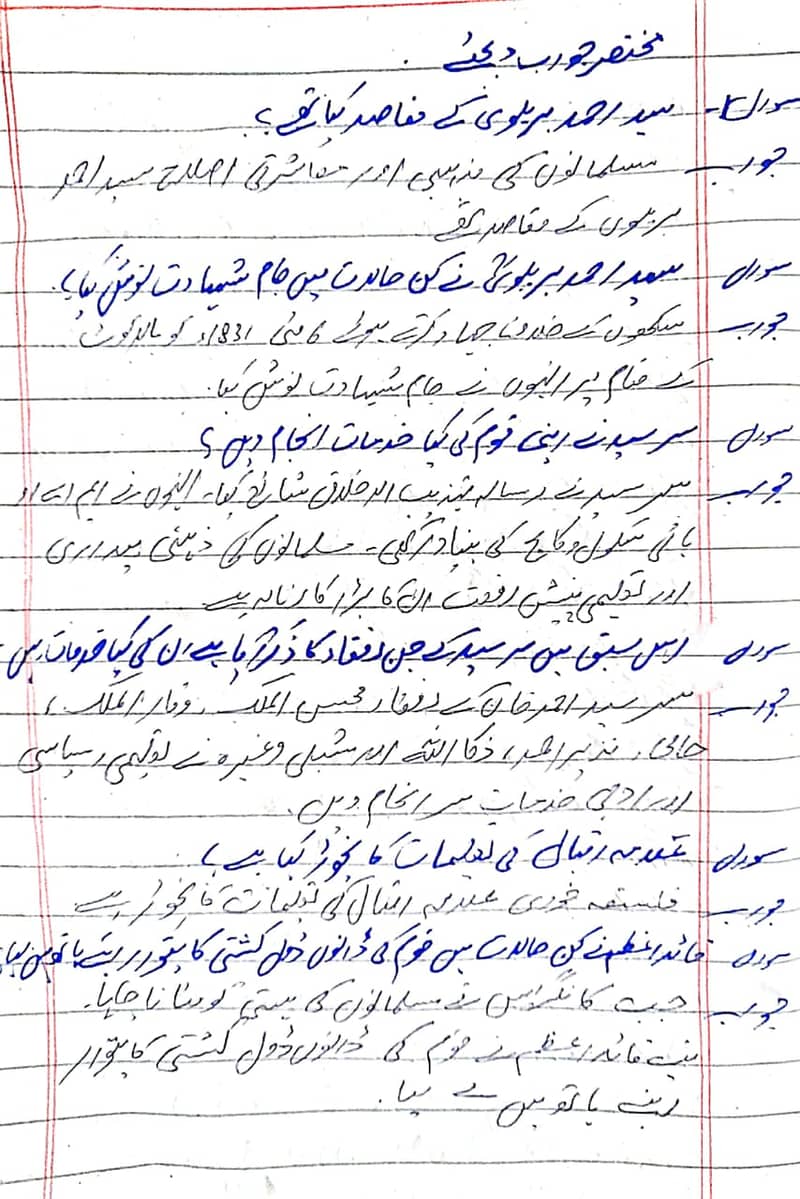 مختصر جواب دیجئے۔
سوال 1۔ سید احمد بریلوی کے مقاصد کیا تھے؟
جواب مسلمانوں کی مذہبی اور معاشرتی اصلاح سید احمد
بریلوی کے مقاصد تھے
سوال سید احمد بریلوی نے کن حالات میں جام شہادت نوش کیا؟
جواب سکھوں کے خلاف جہاد کرتے ہوئے 6 مئی 1831ء کو بالاکوٹ
کے مقام پر انہوں نے جام شہادت نوش کیا۔
سوال سر سید نے اپنی قوم کی کیا خدمات انجام دیں؟
جواب سر سید نے رسالہ تہذیب الاخلاق شائع کیا۔ انہوں نے ایم اے او
ہائی سکول و کالج کی بنیاد رکھی۔ مسلمانوں کی ذہنی بیداری
اور تعلیمی پیش رفت ان کا بڑا کارنامہ ہے
سوال اس سبق میں سر سید کے جن رفقاء کا ذکر آیا ہے ان کی کیا خدمات ہیں
جواب سر سید احمد خان کے رفقاء محسن الملک، وقار الملک،
حالی، نذیر احمد، ذکا اللہ اور شبلی وغیرہ نے تعلیمی، سیاسی
اور ادبی خدمات سر انجام دیں۔
سوال علامہ اقبال کی تعلیمات کا نچوڑ کیا ہے؟
جواب فلسفہ خودی علامہ اقبال کی تعلیمات کا نچوڑ ہے
سوال قائد اعظم نے کن حالات میں قوم کی ڈانواں ڈول کشتی کا پتوار اپنے ہاتھ میں لیا؟
جواب جب کانگراس نے مسلمانوں کی ہستی کو مٹانا چاہا۔
تب قائد اعظم نے قوم کی ڈانواں ڈول کشتی کا پتوار
اپنے ہاتھ میں لے لیا۔